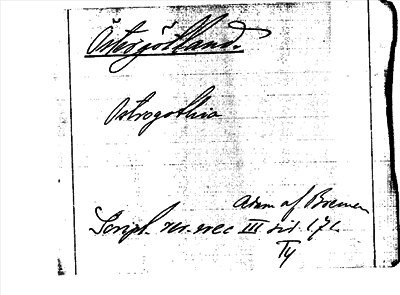 Östergötland.
Ostrogothia
Adam af Bremen
Script. rer. svec III sid.
Ty